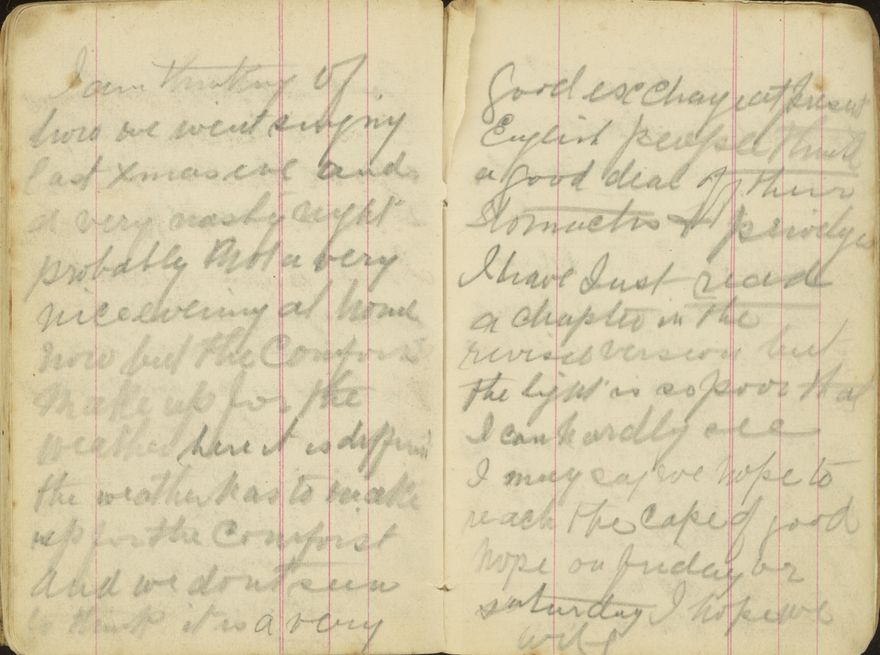 I am thinking of
how we went singing
last Xmas eve and
a very nasty night
probably not a very
nice evening at home
now but the Comfort
make up for the
weather here it is different
the weather has to make
up for the Comforst
and we dont seem
to think it is a very
good exchange at present
English people think
a good deal of their
Stomachs &
I have Just read
a chapter in the
revised version but
the light is so poor that
I can hardly see
I may say we hope to
reach the Cape of good
hope on friday or
saturday I hope we
will